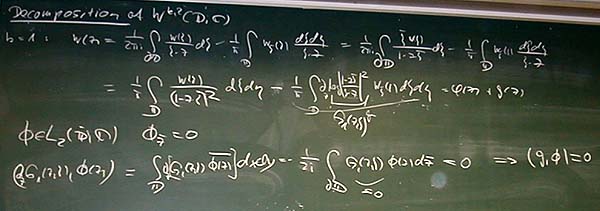 Decomposition of W^{k,2}(D;ℂ)
k=1: w(z) = 1/2πi ∫_{∂D} w(ζ)/(ζ-z) dζ - 1/π ∫_D w_{\bar ζ}(ζ) dξdη/(ζ-z) = 1/2πi ∫_{∂D} ζ w(ζ)/(1-z\bar ζ) - 1/π ∫_D w_{\bar ζ}(ζ) dξdη/(ζ-z)
= 1/π ∫_D w(ζ)/(1-z\bar ζ)^2 dξdη - 1/π ∫_D ∂_z log|(1-z\bar ζ)/(ζ-z)|^2 w_{\bar ζ}(ζ) dξdη = φ(z) + g(z)
ϕ ∈ L_2(D;ℂ) ϕ_{\bar z} = 0
(∂_z G_1(z,ζ), ϕ(z)) = ∫_D ∂_z [G_1(z,ζ) \overline{ϕ(z)}] dxdy = - 1/2i ∫_{∂D} G_1(z,ζ) \overline{ϕ(z)} d\bar z = 0 ⟹ (g, ϕ) = 0
=0